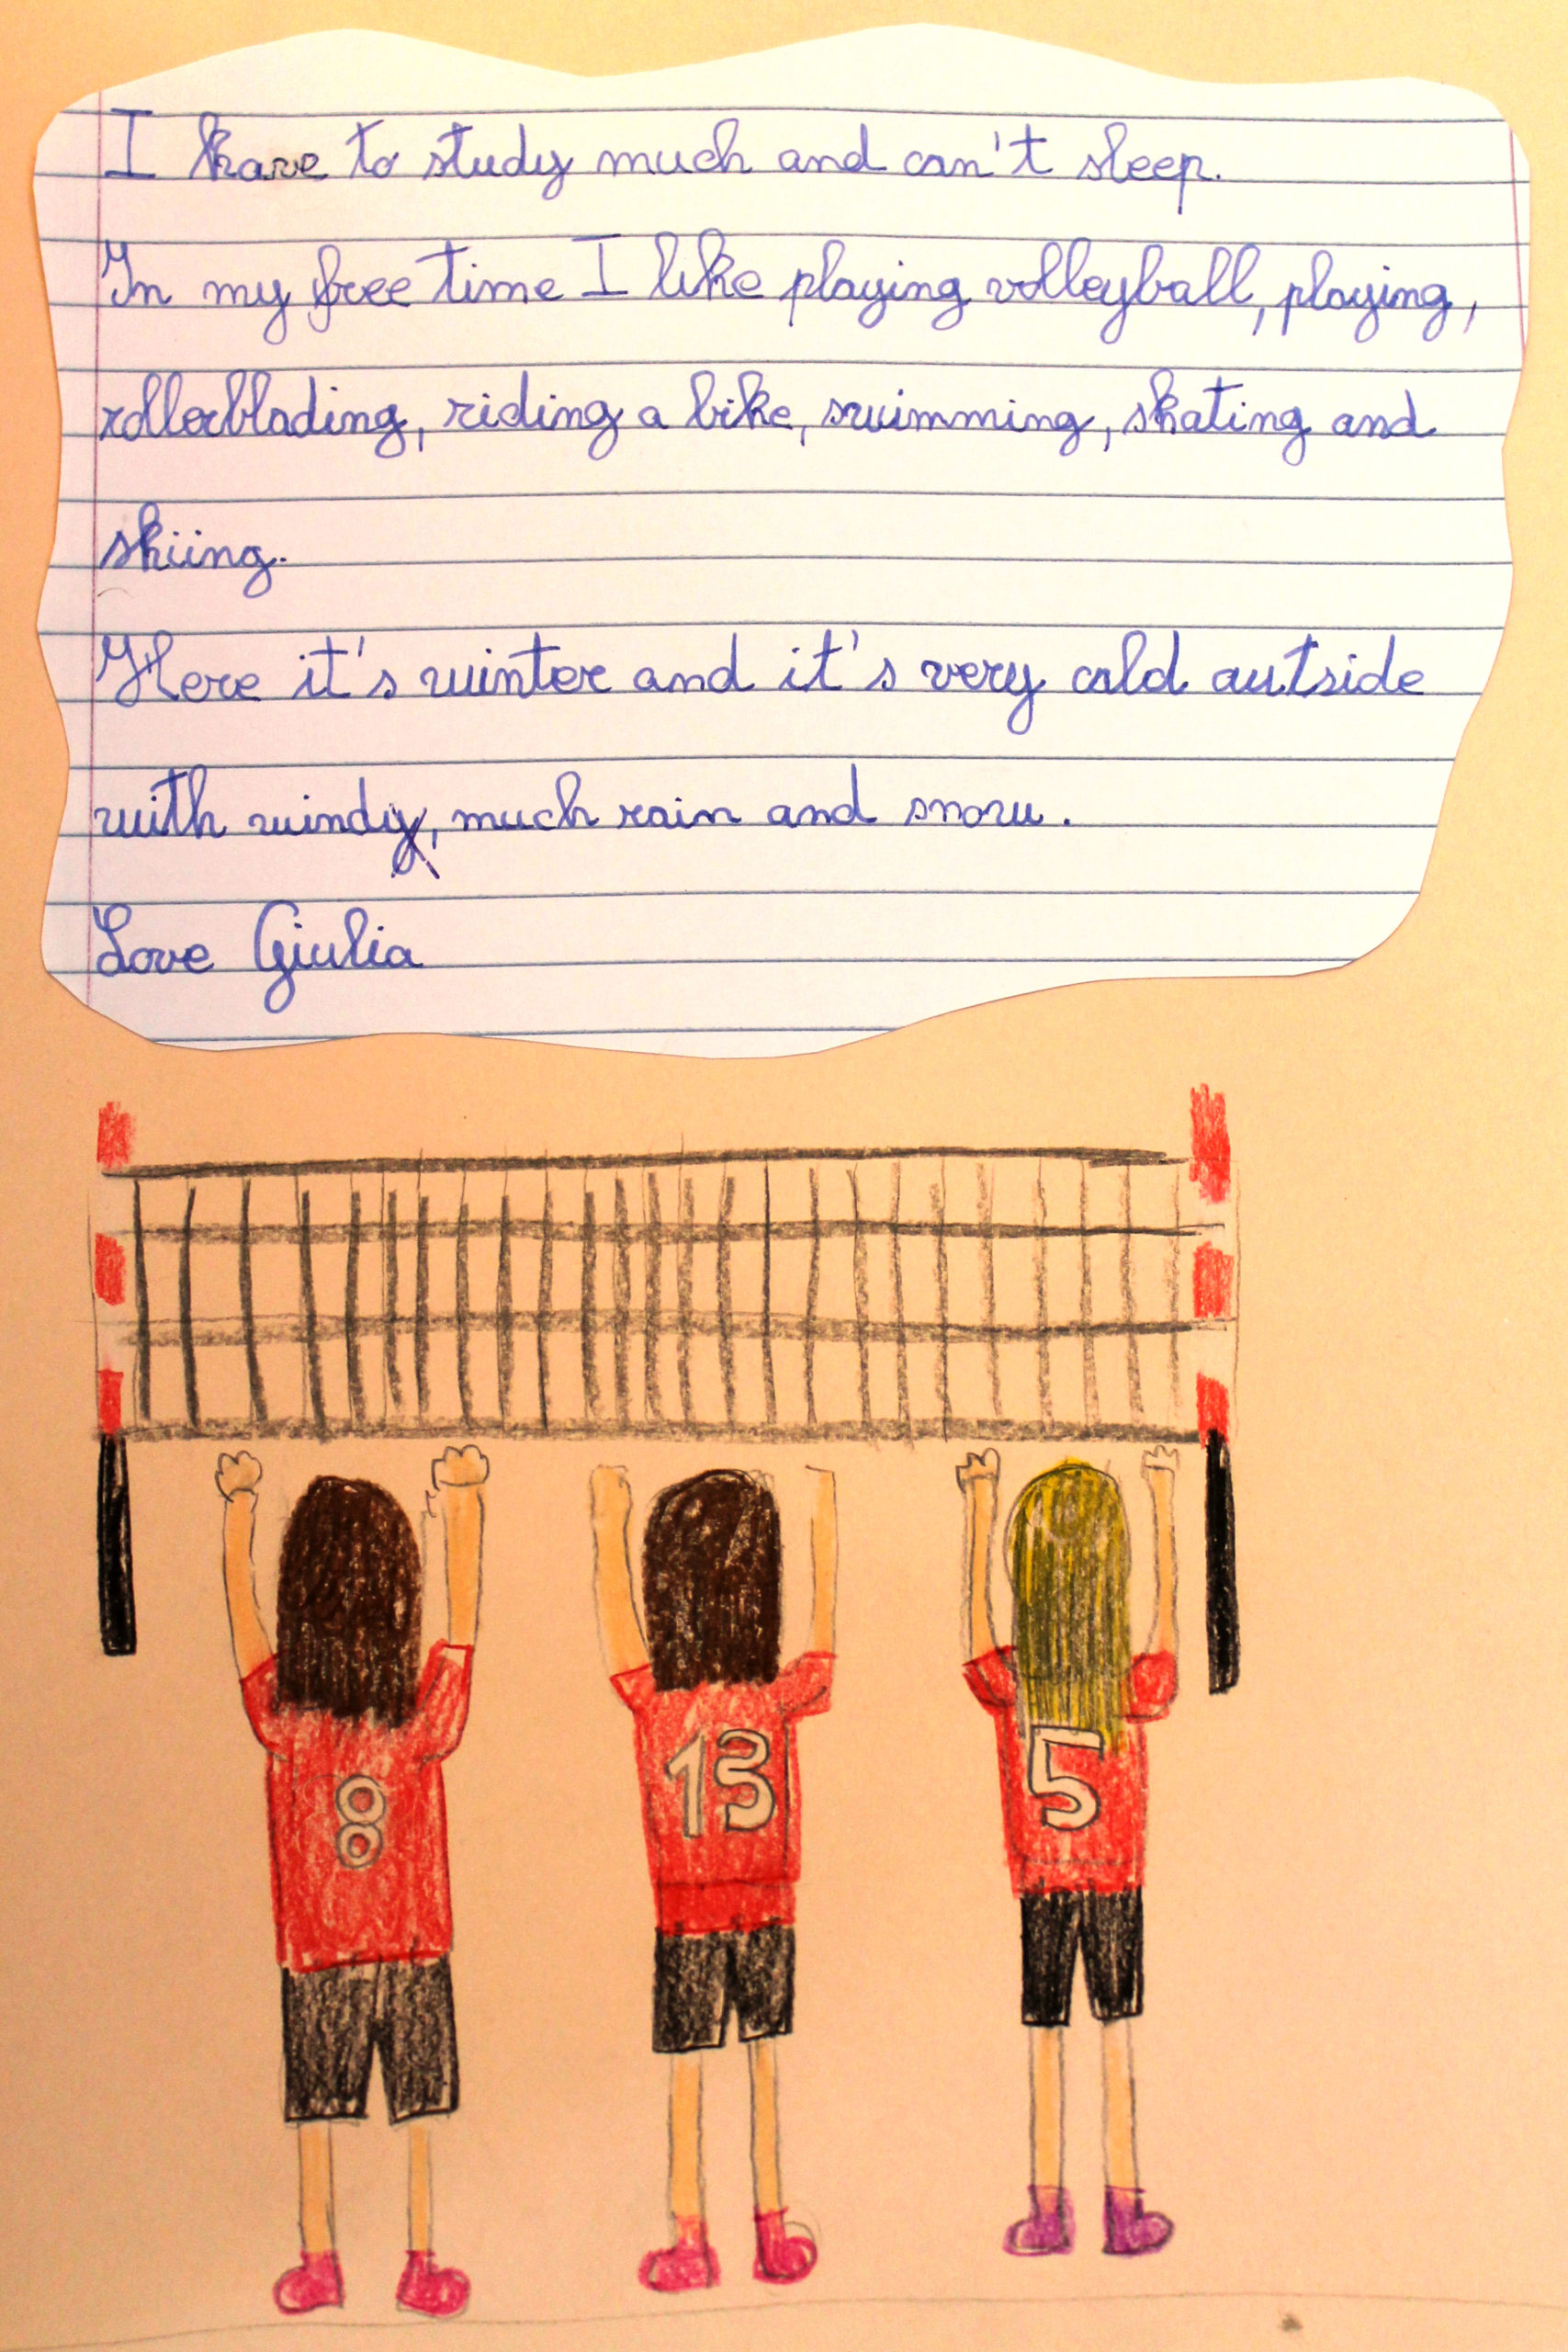 I have to study much and can't sleep.
In my free time I like playing volleyball, playing,
rollerblading, riding a bike, swimming, skating and
skiing.
Here it's winter and it's very cold outside
with wind, much rain and snow.
Love Giulia
8
13
5